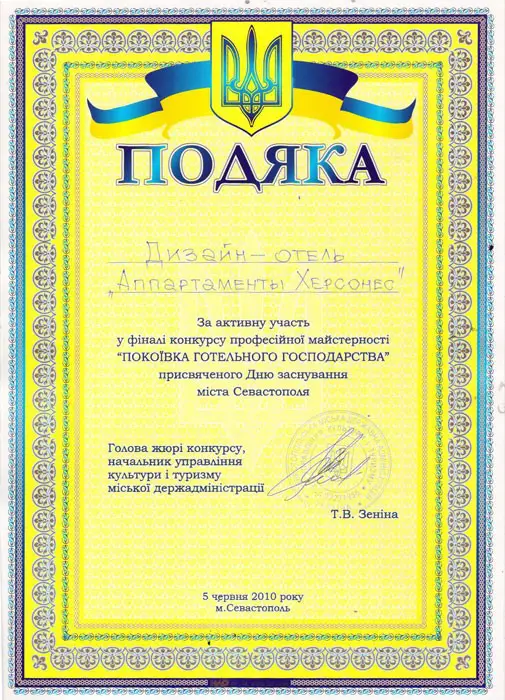 ПОДЯКА
Дизайн-отель
„Аппартаменты Херсонес"
За активну участь
у фіналі конкурсу професійної майстерності
“ПОКОЇВКА ГОТЕЛЬНОГО ГОСПОДАРСТВА”
присвяченого Дню заснування
міста Севастополя
Голова жюрі конкурсу,
начальник управління
культури і туризму
міської держадміністрації
Т.В. Зеніна
5 червня 2010 року
м.Севастополь